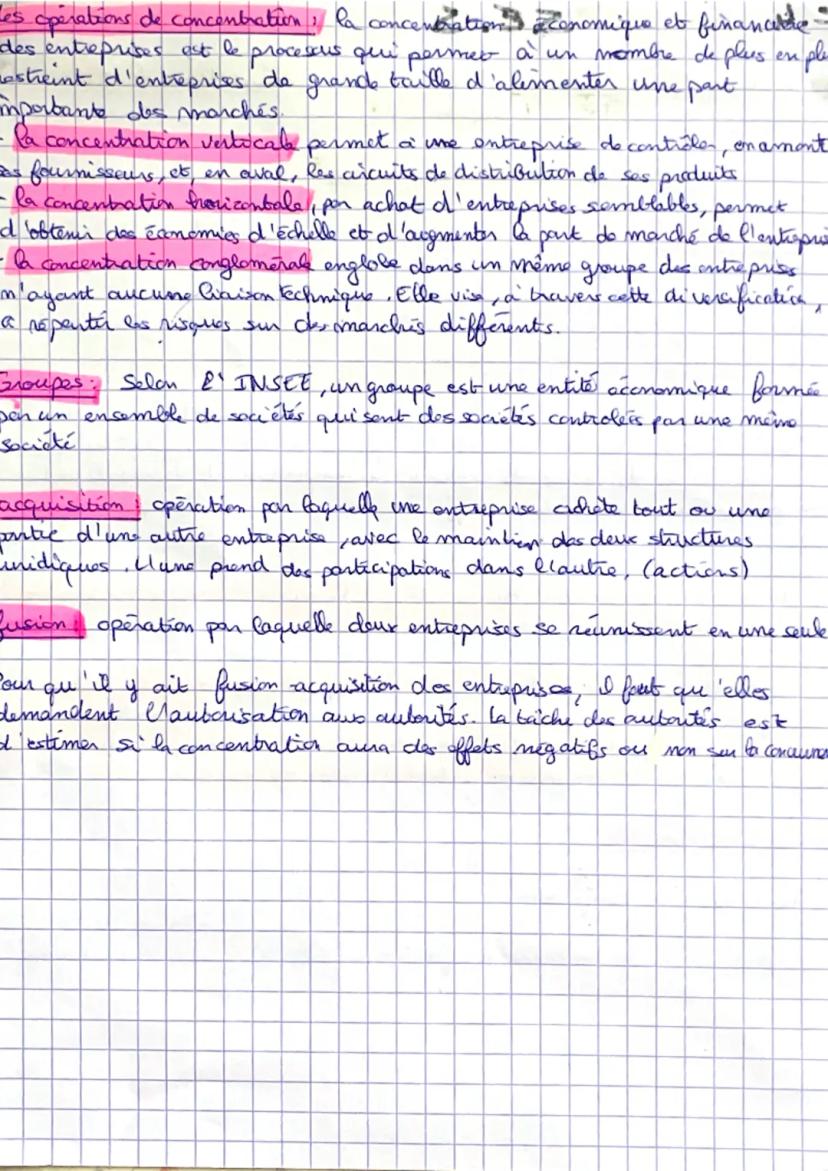 les opérations de concentration : la concentration économique et financière
des entreprises est le processus qui permet à un nombre de plus en plu
restreint d'entreprises de grande taille d'alimenter une part
importante des marchés.
- la concentration verticale permet à une entreprise de contrôler, en amont
ses fournisseurs, et, en aval, les circuits de distribution de ses produits
- la concentration horizontale, par achat d'entreprises semblables, permet
d'obtenir des économies d'échelle et d'augmenter la part de marché de l'entrepris
- la concentration conglomérale englobe dans un même groupe des entreprises
n'ayant aucune liaison technique. Elle vise, à travers cette diversification,
à répartir les risques sur des marchés différents.
Groupes : Selon l'INSEE, un groupe est une entité économique formée
par un ensemble de sociétés qui sont des sociétés controlées par une même
société
acquisition : opération par laquelle une entreprise achète tout ou une
partie d'une autre entreprise, avec le maintien des deux structures
juridiques. L'une prend des participations dans l'autre, (actions)
fusion : opération par laquelle deux entreprises se réunissent en une seule
Pour qu'il y ait fusion-acquisition des entreprises, il faut qu'elles
demandent l'autorisation aux autorités. la tâche des autorités est
d'estimer si la concentration aura des effets négatifs ou non sur la concurren